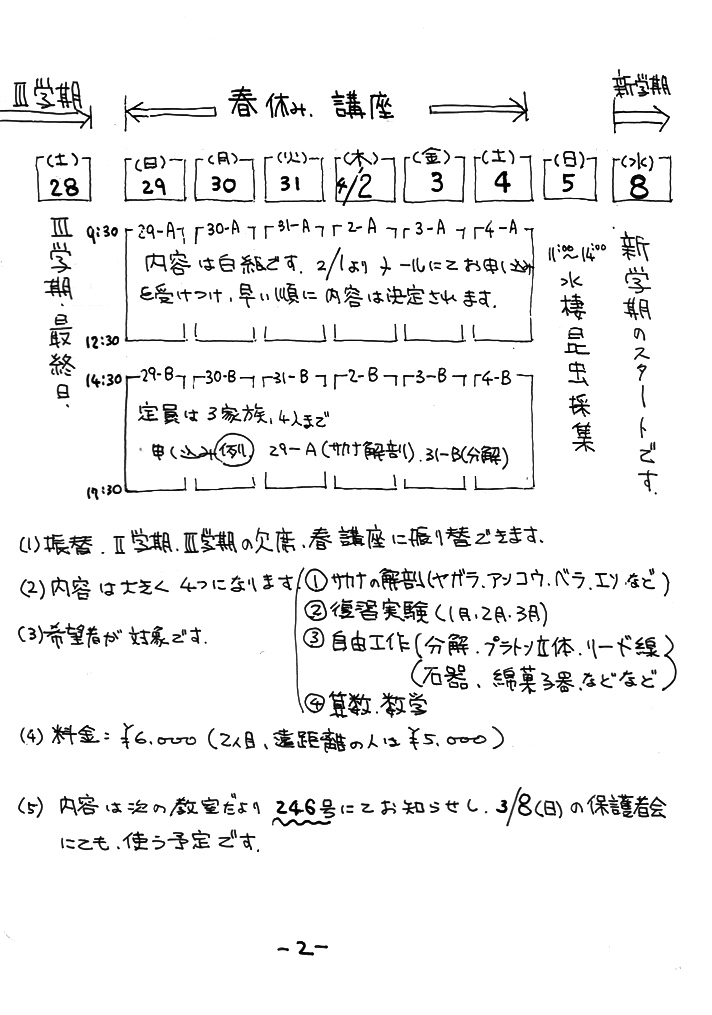 Ⅲ学期 春休み.講座 新学期
(土) (日) (月) (火) (木) (金) (土) (日) (水)
28 29 30 31 4/2 3 4 5 8
Ⅲ学期・最終日.
9:30 29-A 30-A 31-A 2-A 3-A 4-A
内容は白紙です. 2/1よりメールにてお申し込み
を受けつけ,早い順に内容は決定されます.
12:30
14:30 29-B 30-B 31-B 2-B 3-B 4-B
定員は3家族,4人まで
・申し込み例). 29-A(サカナ解剖).31-B(分解)
17:30
11:00~14:00
水棲昆虫採集
新学期のスタートです.
(1)振替.Ⅱ学期.Ⅲ学期の欠席.春講座に振り替できます.
(2)内容は大きく4つになります.①サカナの解剖(ヤガラ.アンコウ.ベラ.エソ.など)
②復習実験(1月,2月.3月)
(3)希望者が対象です.
③自由工作(分解.プラトン立体.リード線)
(石器、綿菓子器.などなど)
④算数.数学
(4)料金:¥6.000(2人目、遠距離の人は¥5.000)
(5) 内容は次の教室だより246号にてお知らせし.3/8(日)の保護者会
にても.使う予定です.
-2-